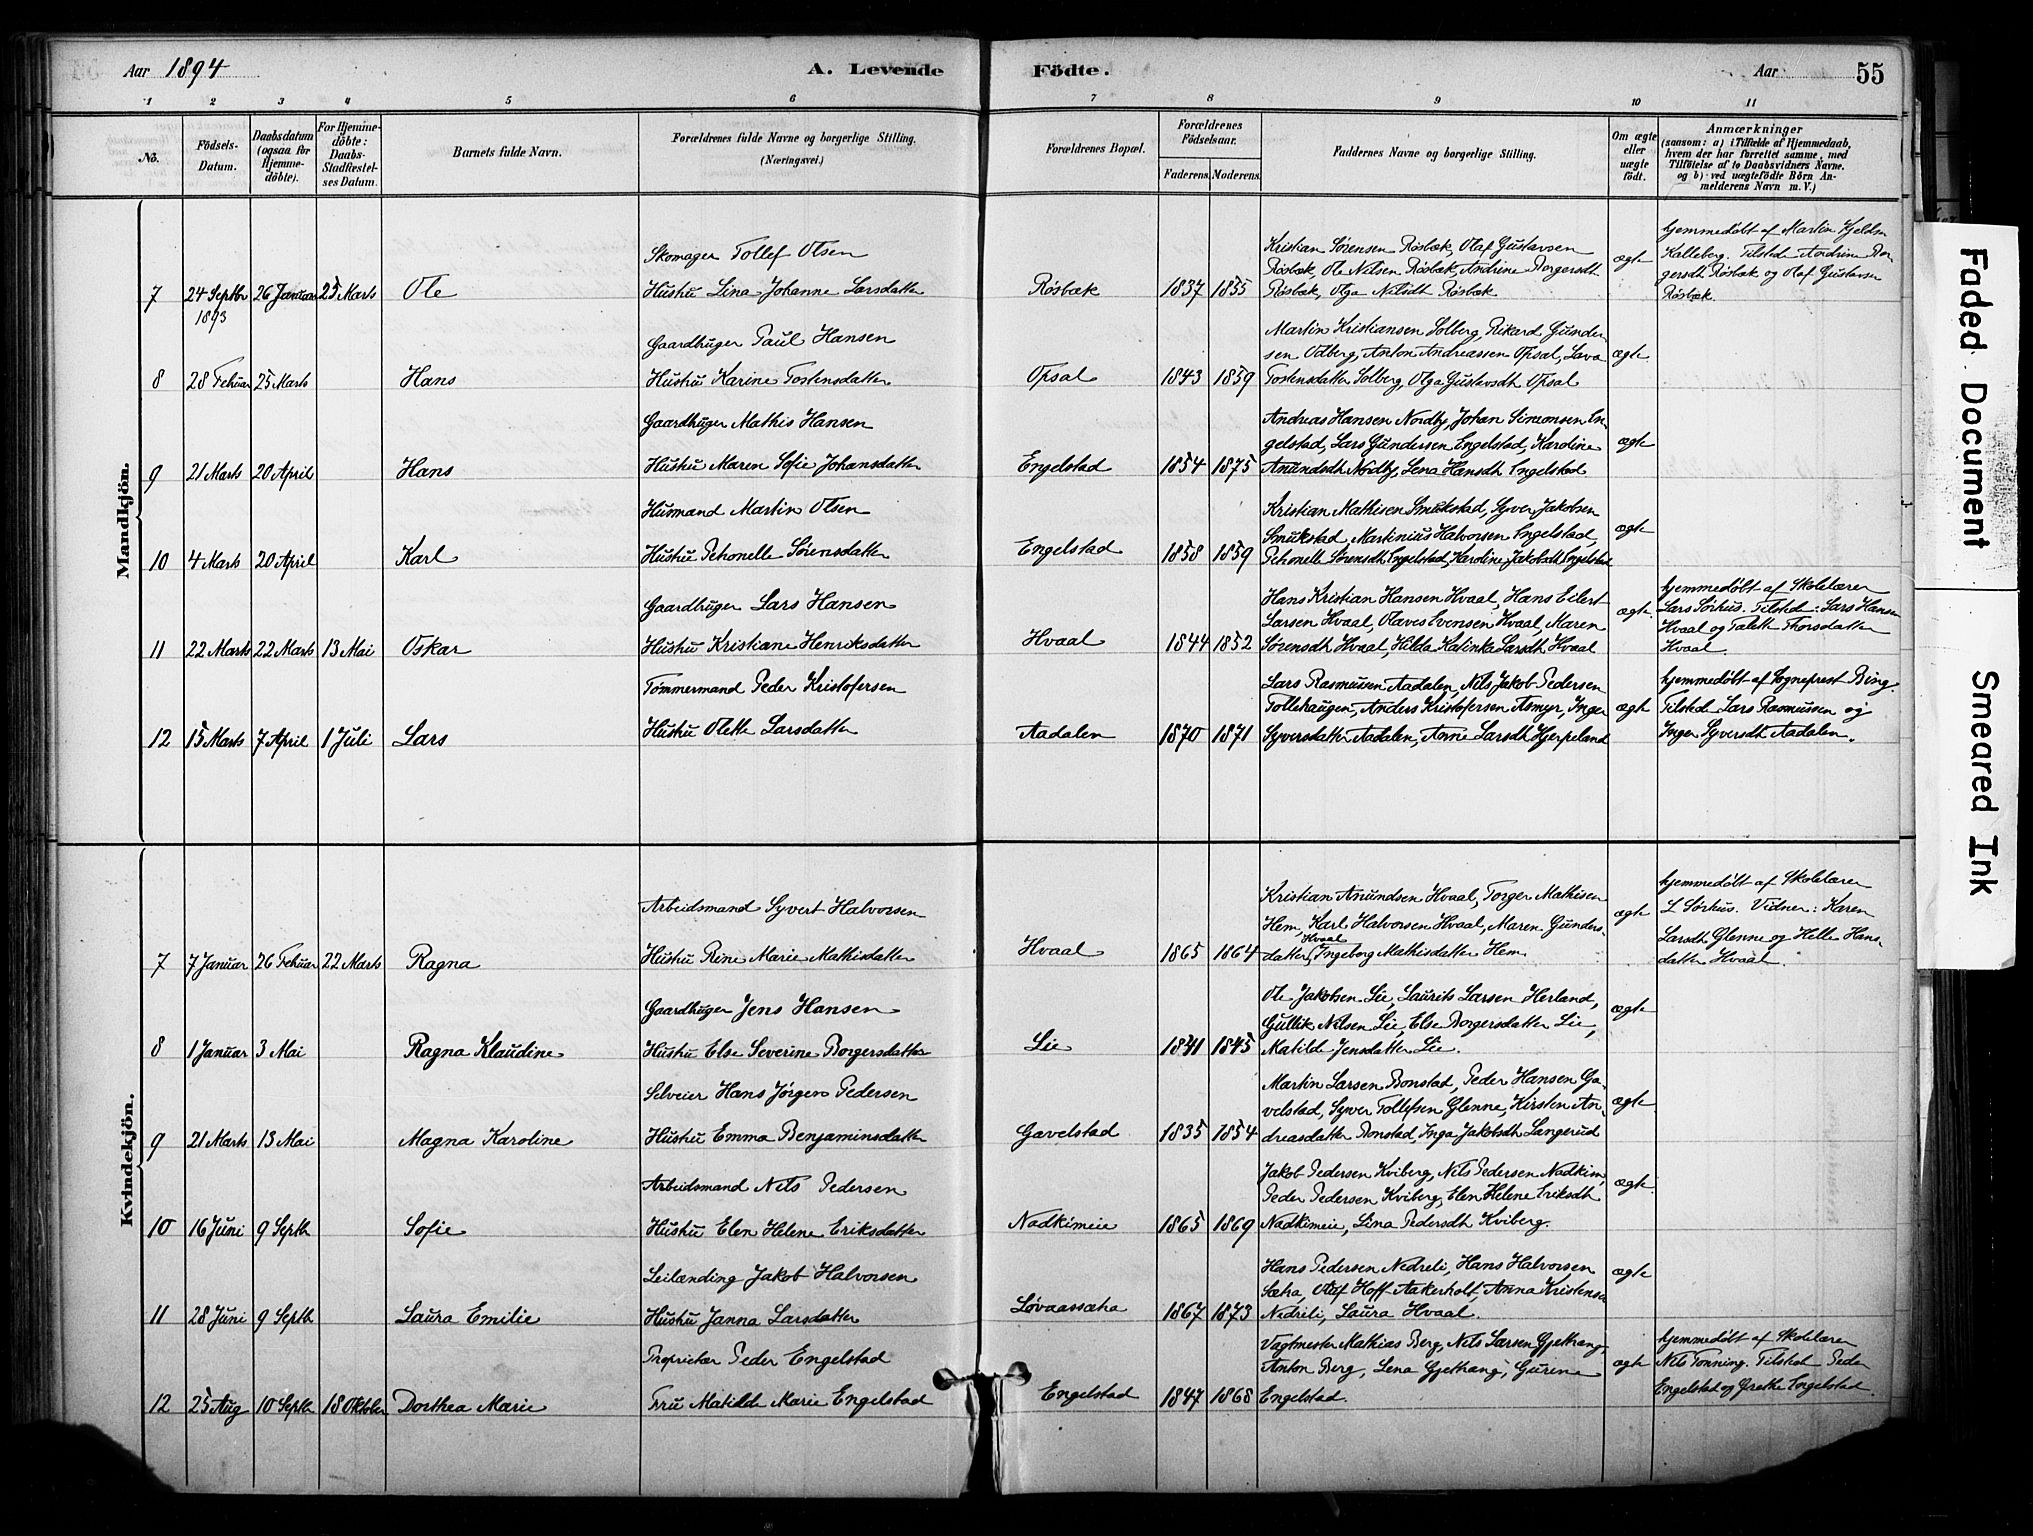 Aar 1894 A. Levende Födte. Aar 55
1 2 3 4 5 6 7 8 9 10 11
No. Födsels-Datum. Daabsdatum (ogsaa for Hjemme-döbte). For Hjemme-döbte: Daabs-Stadfæstel-ses Datum. Barnets fulde Navn. Forældrenes fulde Navne og borgerlige Stilling. (Næringsvei.) Forældrenes Bopæl. Forældrenes Födselsaar. Faderens. Moderens. Faddernes Navne og borgerlige Stilling. Om ægte eller uægte födt. Anmærkninger (saasom: a) i Tilfælde af Hjemmedaab, hvem der har forrettet samme, med Tilföielse af to Daabsvidners Navne, og b) ved uægtefödte Börn An-melderens Navn m. V.)
Mandkjön.
7 24 Septbr 1893 26 Januar 25 Marts Ole
Skomager Tollef Olsen
Hustru Lina Johanne Larsdatter
Røsbæk 1837 1855
Kristian Sørensen Røsbæk, Olaf Gustavsen
Røsbæk, Ole Nilsen Røsbæk, Andrine Borgersdtr
Røsbæk, Olga Nilsdtr Røsbæk
ægte
hjemmedøbt af Martin Kjeldsen
Kalleberg. Tilsted Andrine Bor-
gersdtr Røsbæk og Olaf Gustavsen
Røsbæk.
8 28 Febuar 25 Marts Hans
Gaardbruger Paul Hansen
Hustru Karine Tostensdatter
Opsal 1843 1859
Martin Kristiansen Solberg, Rikard Gunder-
sen Odberg, Anton Andreassen Opsal, Lava
Tostensdatter Solberg, Olga Gustavsdtr Opsal
ægte
9 21 Marts 20 April Hans
Gaardbruger Mathis Hansen
Hustru Maren Sofie Johansdatter
Engelstad 1854 1875
Andreas Hansen Nordby, Johan Simonsen En-
gelstad, Lars Gundersen Engelstad, Karoline
Anundsdtr Nordby, Lena Hansdtr Engelstad
ægte
10 4 Marts 20 April Karl
Husmand Martin Olsen
Hustru Petronelle Sørensdatter
Engelstad 1858 1859
Kristian Mathisen Smukstad, Syver Jakobsen
Smukstad, Martinius Halvorsen Engelstad,
Petronelle Sørensdtr Engelstad, Karoline Jakobsdtr Engelstad
ægte
11 22 Marts 22 Marts 13 Mai Oskar
Gaardbruger Lars Hansen
Hustru Kristiane Henriksdatter
Hvaal 1844 1852
Hans Kristian Hansen Hvaal, Hans Eilert
Larsen Hvaal, Olaves Evensen Hvaal, Maren
Sørensdtr Hvaal, Hilda Katinka Larsdtr Hvaal
ægte
hjemmedøbt af Skolelærer
Lars Sørhus. Tilsted: Lars Hansen
Hvaal og Talette Thorsdatter
Hvaal
12 15 Marts 7 April 1 Juli Lars
Tømmermand Peder Kristofersen
Hustru Olette Larsdatter
Aadalen 1870 1871
Lars Rasmussen Aadalen, Nils Jakob Pedersen
Tollehaugen, Anders Kristofersen Asmyr, Inger
Syversdatter Aadalen, Anne Larsdtr Hjerpeland
ægte
hjemmedøbt af Sogneprest Bing.
Tilsted Lars Rasmussen og
Inger Syversdtr Aadalen.
Kvindekjön.
7 7 Januar 26 Febuar 22 Marts Ragna
Arbeidsmand Syvert Halvorsen
Hustru Rine Marie Mathisdatter
Hvaal 1865 1864
Kristian Anundsen Hvaal, Torger Mathisen
Hem, Karl Halvorsen Hvaal, Maren Gunders-
datter Hvaal, Ingeborg Mathisdatter Hem
ægte
hjemmedøbt af Skolelærer
L Sørhus. Vidner: Karen
Larsdtr Glenne og Helle Hans-
datter Hvaal.
8 1 Januar 3 Mai Ragna Klaudine
Gaardbruger Jens Hansen
Hustru Else Severine Borgersdatter
Lie 1841 1845
Ole Jakobsen Lie, Laurits Larsen Herland,
Gullik Nilsen Lie, Else Borgersdatter Lie,
Matilde Jensdatter Lie.
ægte
9 21 Marts 13 Mai Magna Karoline
Selveier Hans Jørgen Pedersen
Hustru Emma Benjaminsdatter
Gavelstad 1835 1854
Martin Larsen Bonstad, Peder Hansen Ga-
velstad, Syver Tollefsen Glenne, Kirsten An-
dreasdatter Bonstad, Inga Jakobsdtr Langerud
ægte
10 16 Juni 9 Septbr Sofie
Arbeidsmand Nils Pedersen
Hustru Elen Helene Eriksdatter
Nadkimeie 1865 1869
Jakob Pedersen Kviberg, Nils Pedersen Nadkim,
Peder Pedersen Kviberg, Elen Helene Eriksdtr
Nadkimeie, Lina Pedersdtr Kviberg.
ægte
11 28 Juni 9 Septbr Laura Emilie
Leilænding Jakob Halvorsen
Hustru Janna Larsdatter
Løvaassætra 1867 1873
Hans Pedersen Nedreli, Hans Halvorsen
Sætra, Olaf Hoff Aakerholt, Anna Kristensen
Nedreli, Laura Hvaal.
ægte
12 25 Aug 10 Septbr 18 Oktober Dorthea Marie
Proprietær Peder Engelstad
Fru Matilde Marie Engelstad
Engelstad 1847 1868
Vagtmester Mathias Berg, Nils Larsen Gjettrang,
Anton Berg, Lena Gjettrang, Gurine
Engelstad.
ægte
hjemmedøbt af Skolelærer
Nils Tonning. Tilsted Peder
Engelstad og Grethe Engelstad.
Faded Document
Smeared Ink